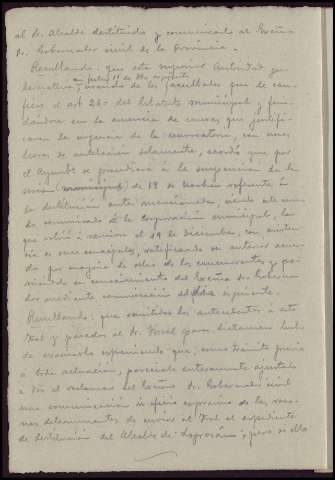 al Sr. Alcalde destituido y comunicado al Excmo
Sr. Gobernador civil de la Provincia.
Resultando: que esta superior Autoridad gu-
bernativa, en fecha 11 de Dbre usando de las facultades que le con-
fiere el art 260 del Estatuto municipal y fun-
dándose en la ausencia de causas que justifi-
caran la urgencia de la convocatoria, con
horas de antelación solamente, acordó que por
el Ayuntº se procediera a la suspensión de la
sesión municipal de 18 de Nobre referente a
la destitución antes mencionada, siendo este acuer-
do comunicado a la Corporación municipal, la
que volvió a reunirse el 19 de Diciembre, con asisten-
cia de once concejales, ratificando su anterior acuer-
do por mayoría de ocho de los concurrentes y po-
niéndolo en conocimiento del Excmo Sr. Goberna-
dor mediante comunicación del día siguiente.
Resultando: que remitidos los antecedentes a este
Tral y pasados al Sr. Fiscal para dictamen hubo
de evacuarlo exponiendo que, como trámite previo
a toda actuación, parecíale enteramente ajustado
a dº el reclamar del Excmo Sr. Gobernador civil
una comunicación u oficio expresivo de las razo-
nes determinantes de enviar al Tral el expediente
de destitución del Alcalde de Logrosán; pero si ello